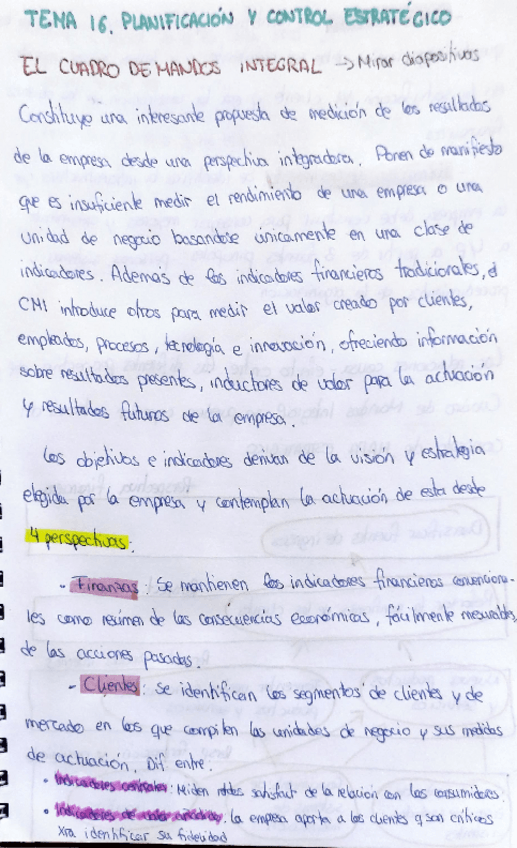 TEMA 16. PLANIFICACIÓN Y CONTROL ESTRATÉGICO
EL CUADRO DE MANDOS INTEGRAL → Mirar diapositivas
Constituye una interesante propuesta de medición de los resultados
de la empresa desde una perspectiva integradora. Ponen de manifiesto
que es insuficiente medir el rendimiento de una empresa o una
unidad de negocio basandose únicamente en una clase de
indicadores. Además de los indicadores financieros tradicionales, el
CMI introduce otros para medir el valor creado por clientes,
empleados, procesos, tecnología e innovación, ofreciendo información
sobre resultados presentes, inductores de valor para la actuación
y resultados futuros de la empresa.
Los objetivos e indicadores derivan de la visión y estrategia
elegida por la empresa y contemplan la actuación de esta desde
4 perspectivas.
- Finanzas: Se mantienen los indicadores financieros convenciona-
les como resúmen de las consecuencias económicas, fácilmente mesurables,
de las acciones pasadas.
- Clientes: se identifican los segmentos de clientes y de
mercado en los que compiten las unidades de negocio y sus medidas
de actuación. Dif entre:
• Indicadores centrales: Miden rdtos satisfact de la relación con los consumidores.
• Indicadores de valor añadido: la empresa aporta a los clientes q son críticos
Xra identificar su fidelidad